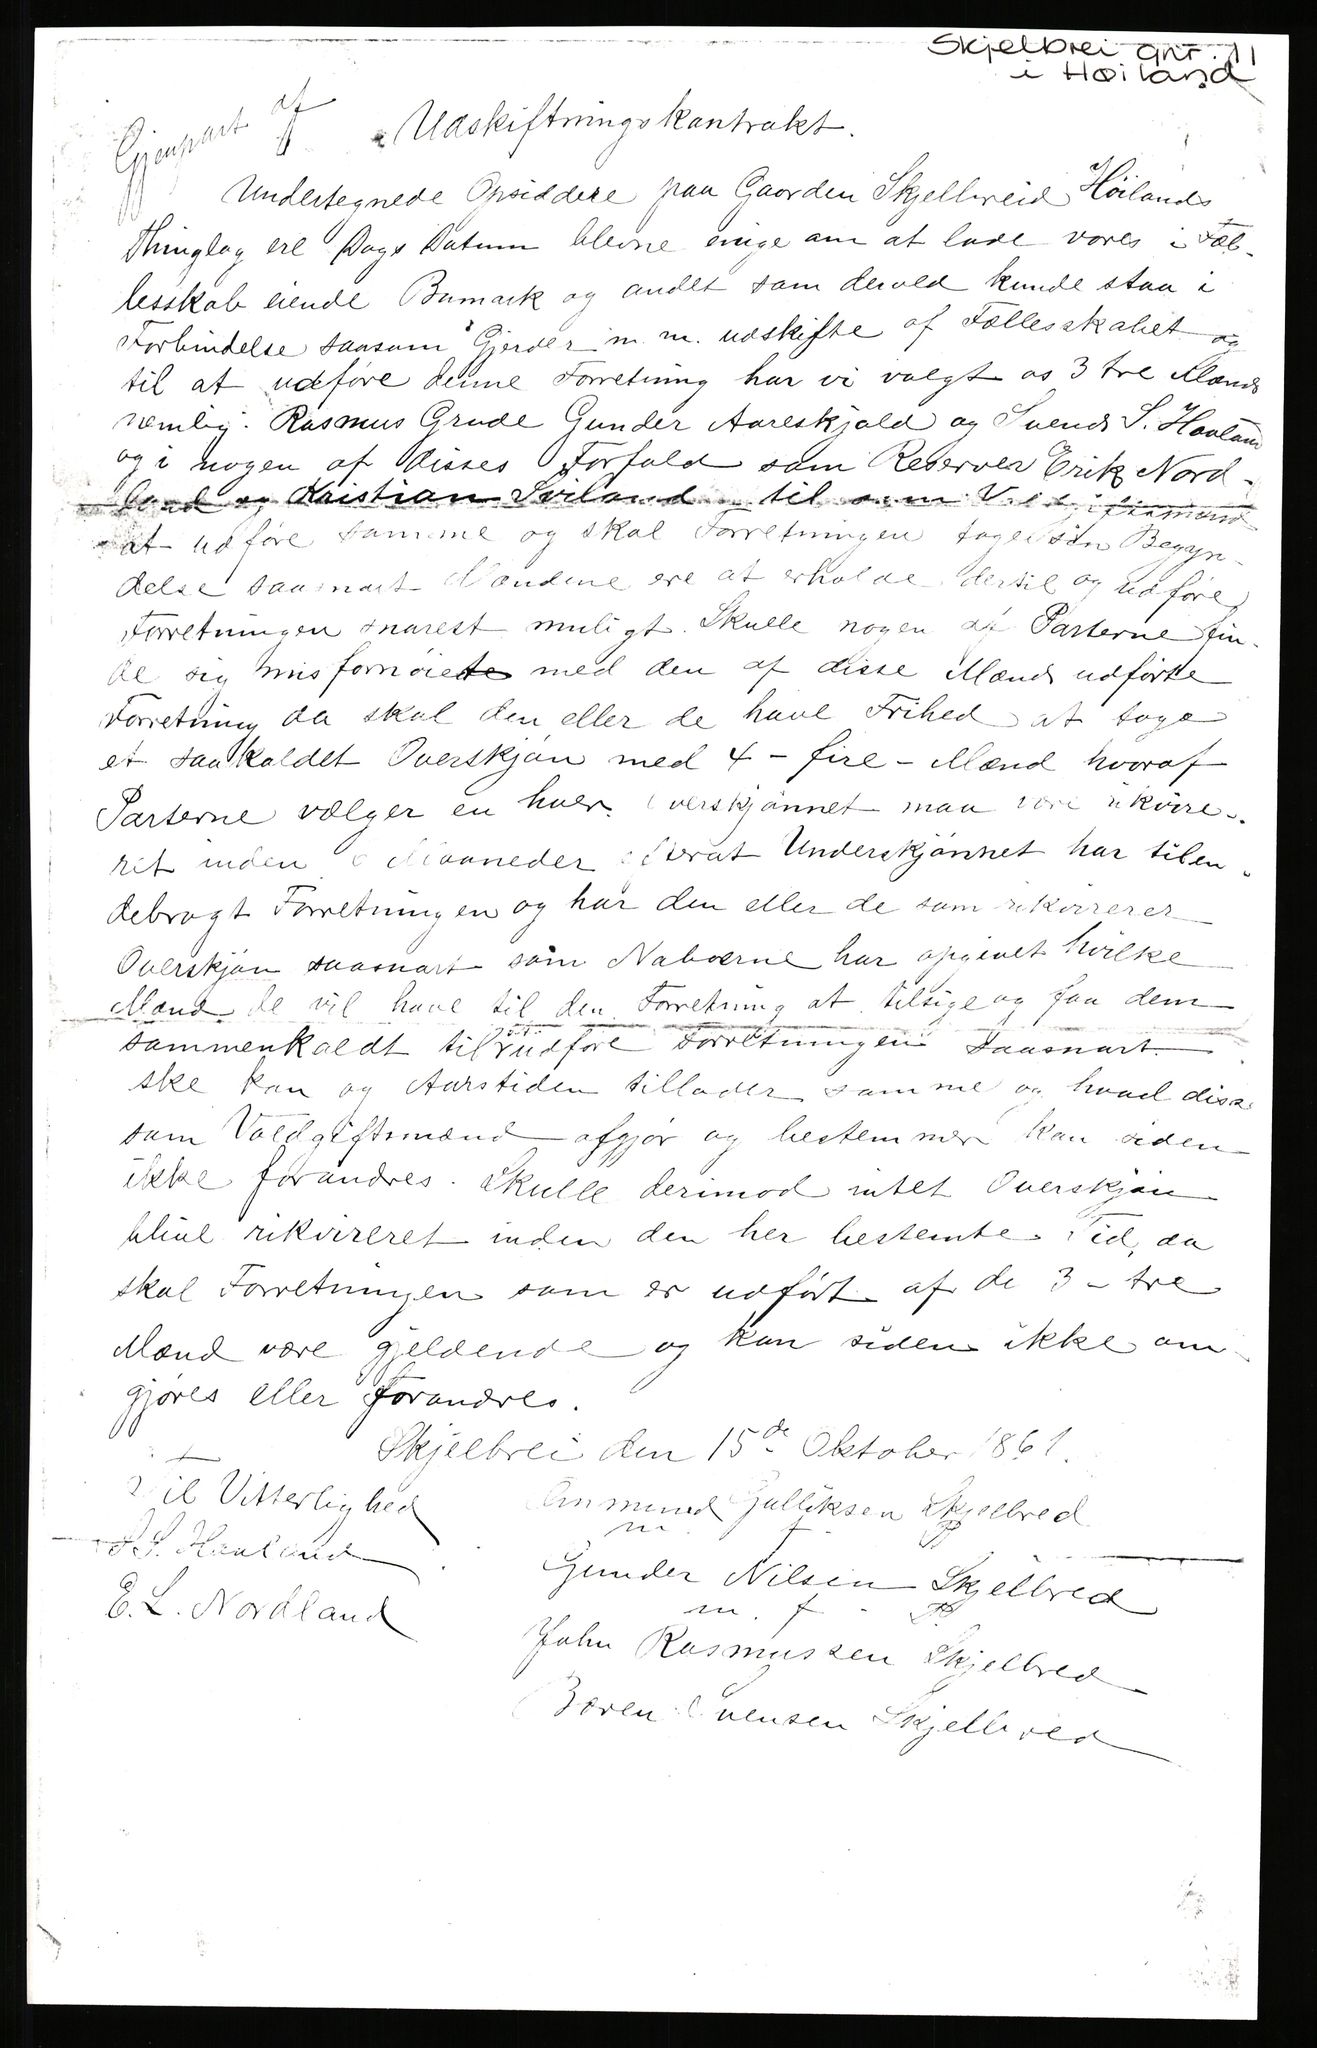 Skjelbrei gnr. 11
i Høiland
Gjenpart af Udskiftningskontrakt.
Undertegnede Opsiddere paa Gaarden Skjelbreid Høilands
Thinglag ere Dags Datum blevne enige om at lade vores i Fæl-
lesskab eiende Bumark og andet som derved kunde staa i
Forbindelse saasom Gjerder m. m. udskifte af Fællesskabet og
til at udføre denne Forretning har vi valgt os 3 tre Mænd
nemlig: Rasmus Grude Gunder Aareskjold og Svend S. Haaland
og i nogen af disses Forfald som Reserver Erik Nord-
land og Kristian Sviland til som Voldgiftsmænd
at udføre samme og skal Forretningen tage sin Begyn-
delse saasnart Mændene ere at erholde dertil og udføre
Forretningen snarest muligt. Skulle nogen af Parterne fin-
de sig misfornøiete med den af disse Mænd udførte
Forretning da skal den eller de have Frihed at tage
et saakaldet Overskjøn med 4 - fire - Mænd hvoraf
Parterne vælger en hver. Overskjønnet maa være rikvire-
ret inden 6 Maaneder efterat Underskjønnet har tilen-
debragt Forretningen og har den eller de som rikvirerer
Overskjøn saasnart som Naboerne har opgivet hvilke
Mænd de vil have til den Forretning at tilsige og faa dem
sammenkaldt til at udføre Forretningen saasnart
ske kan og Aarstiden tillader samme og hvad disse
som Voldgiftsmænd afgjør og bestemmer kan siden
ikke forandres. Skulle derimod intet Overskjøn
blive rikvireret inden den her bestemte Tid, da
skal Forretningen som er udført af de 3 - tre
Mænd være gjeldende og kan siden ikke om-
gjøres eller forandres.
Skjelbrei den 15de Oktober 1861.
Til Vitterlighed
S. S. Haaland
E. L. Nordland
Ommund Gulliksen Skjelbred
m. f. P.
Gunder Nilsen Skjelbred
m. f. P.
John Rasmussen Skjelbred
Søren Svensen Skjelbred